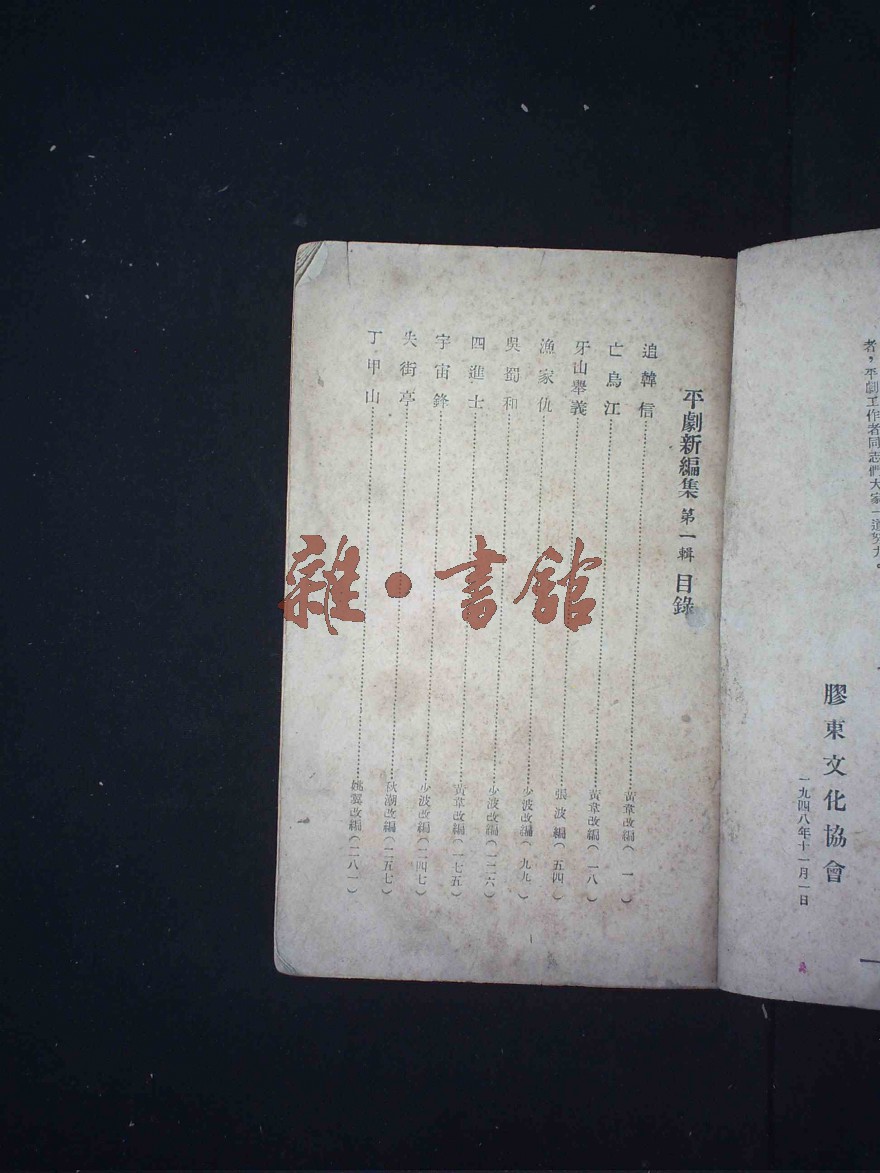 者，平劇工作者同志們大家一道努力。
膠東文化協會
一九四八年十一月一日
平劇新編集 第一輯 目錄
追韓信……黃韋改編（一）
亡烏江……黃韋改編（一八）
牙山舉義……張波編（五四）
漁家仇……少波改編（九九）
吳蜀和……少波改編（一二六）
四進士……黃韋改編（一七五）
宇宙鋒……少波改編（二四七）
失街亭……秋潮改編（二五七）
丁甲山……姚翼改編（二八一）
雜·書館